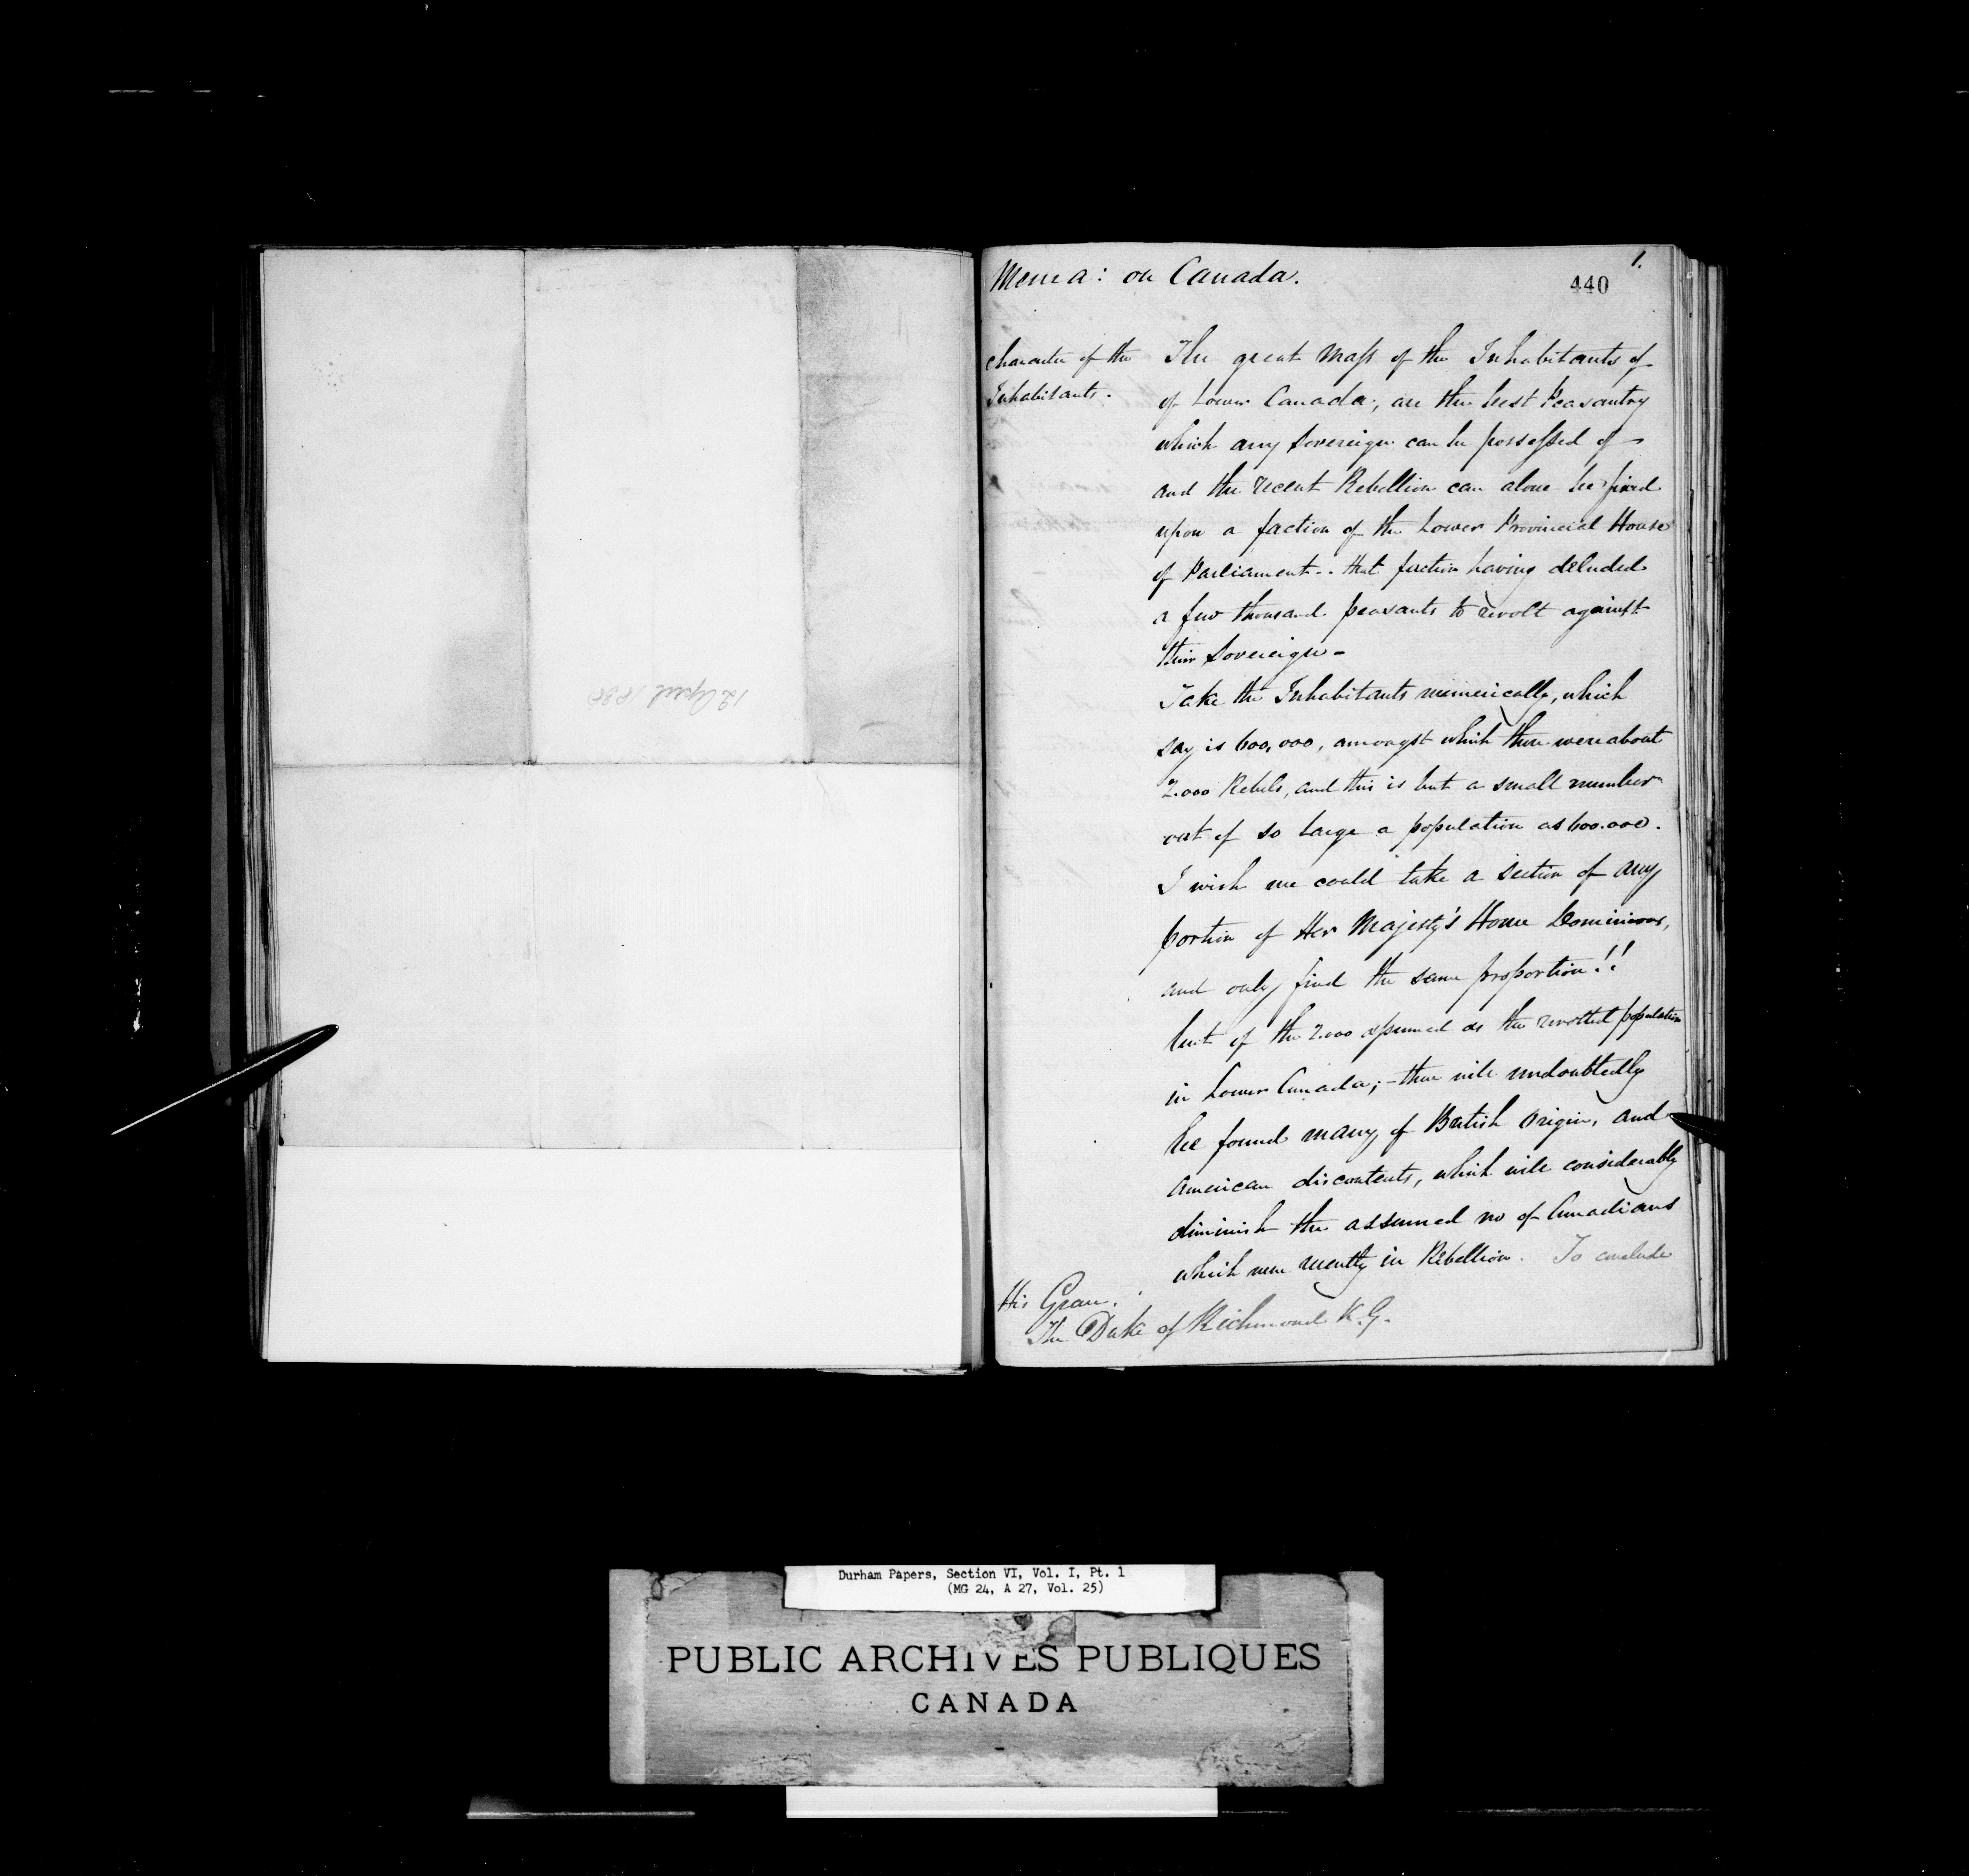 12 April 1838
1.
Mema: on Canada.
440
Character of the
Inhabitants.
The great Mass of the Inhabitants of
of Lower Canada, are the best Peasantry
which any Sovereign can be possessed of —
and the recent Rebellion can alone be fixed
upon a faction of the Lower Provincial House
of Parliament.. that faction having deluded
a few thousand peasants to revolt against
their Sovereign -
Take the Inhabitants numerically, which
say is 600,000, amongst which there were about
2.000 Rebels, and this is but a small number
out of so large a population as 600.000.
I wish we could take a section of any
portion of Her Majesty's Home Dominions,
and only find the same proportion!!
but of the 2.000 assumed as the revolted population
in Lower Canada; - there will undoubtedly
be found many of British Origin, and
American discontents, which will considerably
diminish the assumed no of Canadians
which were recently in Rebellion. To conclude
His Grace.
The Duke of Richmond K.G.
Durham Papers, Section VI, Vol. I, Pt. 1
(MG 24, A 27, Vol. 25)
PUBLIC ARCHIVES PUBLIQUES
CANADA